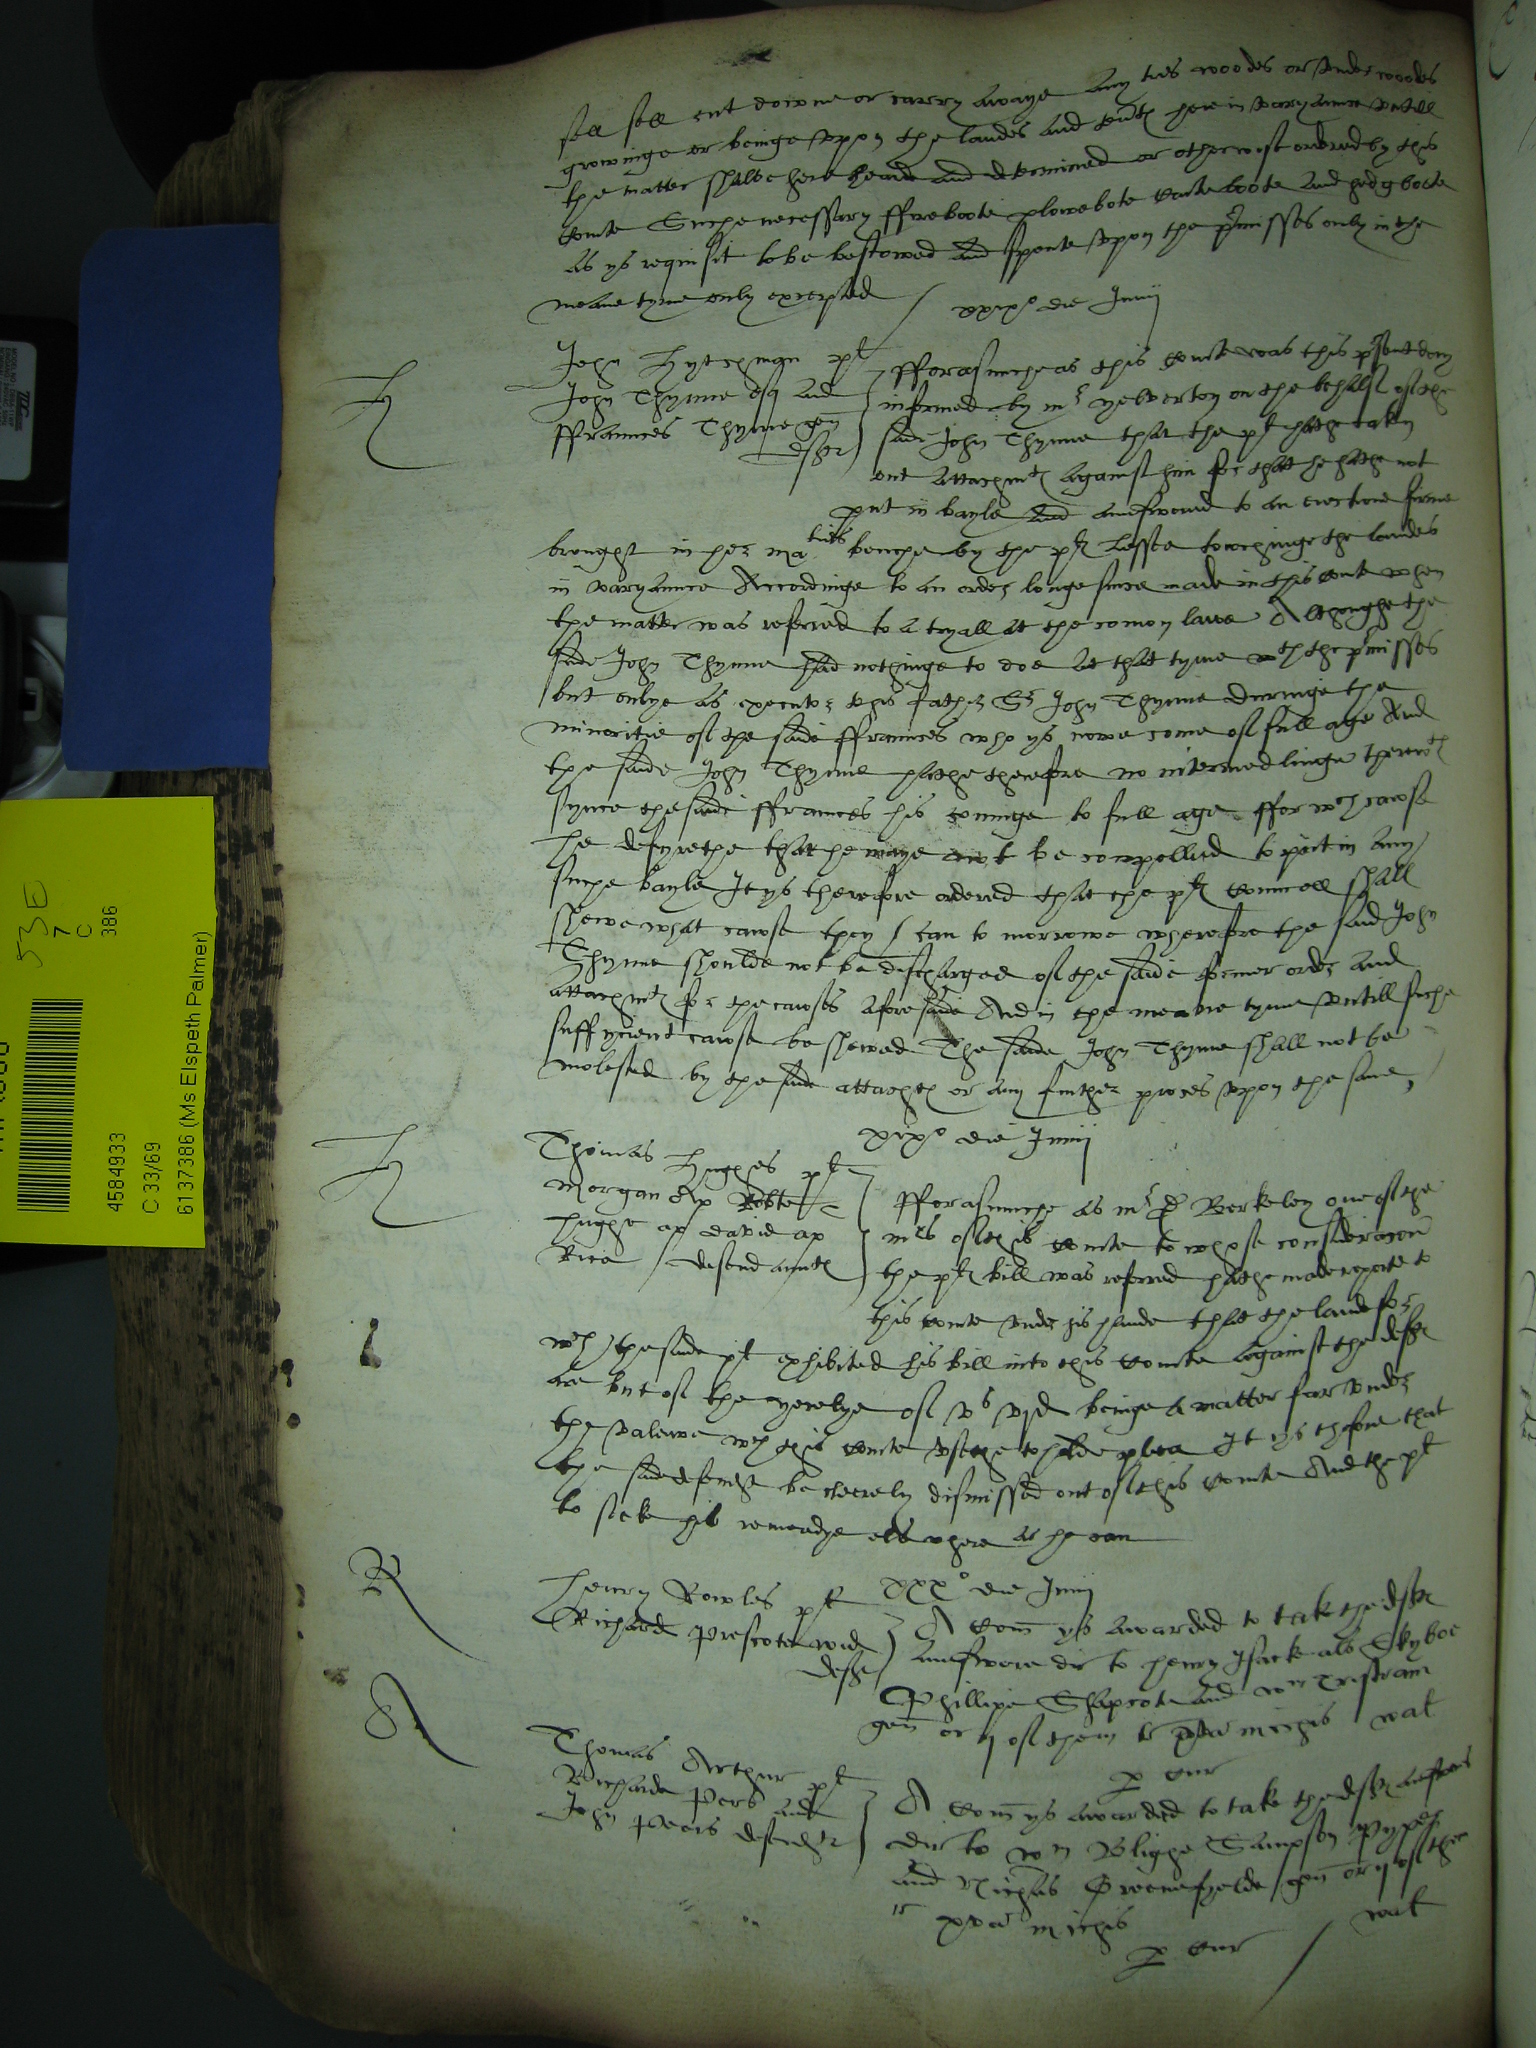 sell fell cut downe or carry awaye any tres woodes or underwoodes
growinge or beinge uppon the landes and tente here in varyaunce untill
the matter shalbe here heard and determined or otherwise ordered by this
courte Suche necessary ffireboote plowebote carteboote and hedgboote
as ys requisit to be bestowed and spente upon the pʳmisses only in the
meane tyme only excepted / xxixº die Junij
John Hytchman pᵗ
John Thynne esq and
ffraunces Thynne gen
defᵗᵉˢ
fforasmuche as this courte was this pʳsent day
informed by mʳ yelverton on the behalf of the
said John Thynne that the pᵗ hathe taken
out attachmᵗ against him for that he hathe not
put in bayle and aunswered to an eiectione firme
brought in her maᵗⁱᵉˢ benche by the pᵗˢ lessee towchinge the landes
in varyaunce Accordinge to an order longe since made in this courte when
the matter was referred to a tryall at the comon lawe Althoughe the
said John Thynne had nothinge to doe at that tyme wᵗʰ the pʳmisses
but onlye as executor to his father Sʳ John Thynne duringe the
minoritie of the saide ffraunces who ys nowe come of full age And
the saide John Thynne hathe therefore no intermedlinge therewᵗʰ
synce the saide ffraunces his cominge to full age ffor wᶜʰ cawse
he desyrethe that he maye not be compelled to put in any
suche bayle It ys therefore ordered that the pᵗˢ councell shall
shewe what cawse they can to morrowe wherefore the said John
Thynne shoulde not be discharged of the saide former order and
attachmᵗ for the cawses aforesaide And in the meane tyme untill suche
suffycient cawse be shewed The saide John Thynne shall not be
molested by the said attachmᵗ or any further proces upon the same
xxixº die Junij
Thomas Hughes pᵗ
Morgan Ap Robte
Hughe ap david ap
Rice defendauntes
fforasmuche as mʳ D Berkeley one of the
mʳˢ of this courte to whose consideracon
the pᵗˢ bill was referred hathe made reporte to
this courte under his hande that the lande for
wᶜʰ the saide pᵗ exhibited his bill into this courte against the defᵗᵉˢ
are but of the yerelye of vˢ vjᵈ beinge a matter far under
the valewe wᶜʰ this courte usethe to holde plea It ys thefore that
the saide defendᵗᵉˢ be cleerely dismissed out of this courte And the pᵗ
to seke his remedye els where as he can
xxxº die Junij
Henry Rowles pᵗ
Richard Prescote wid
defᵗᵉˢ
A com ys awarded to take the defᵗᵉˢ
aunswere dir to henry Isack als Skyboe
Phillipe Shapcote and wᵐ Tristram
gen or ij of them michis wat
p cur
Thomas Arthur pᵗ
Richarde Pers and
John Peers defendᵗᵉˢ
A com ys awarded to take the defᵗᵉˢ aunswere
dir to wᵐ Blighe Sampson Pyper
and Nichas Greenefyelde gen or ij of them
xvᵃ michis wat
p cur
4584933
C 33/69
6137386 (Ms Elspeth Palmer)
53E
7
C
386